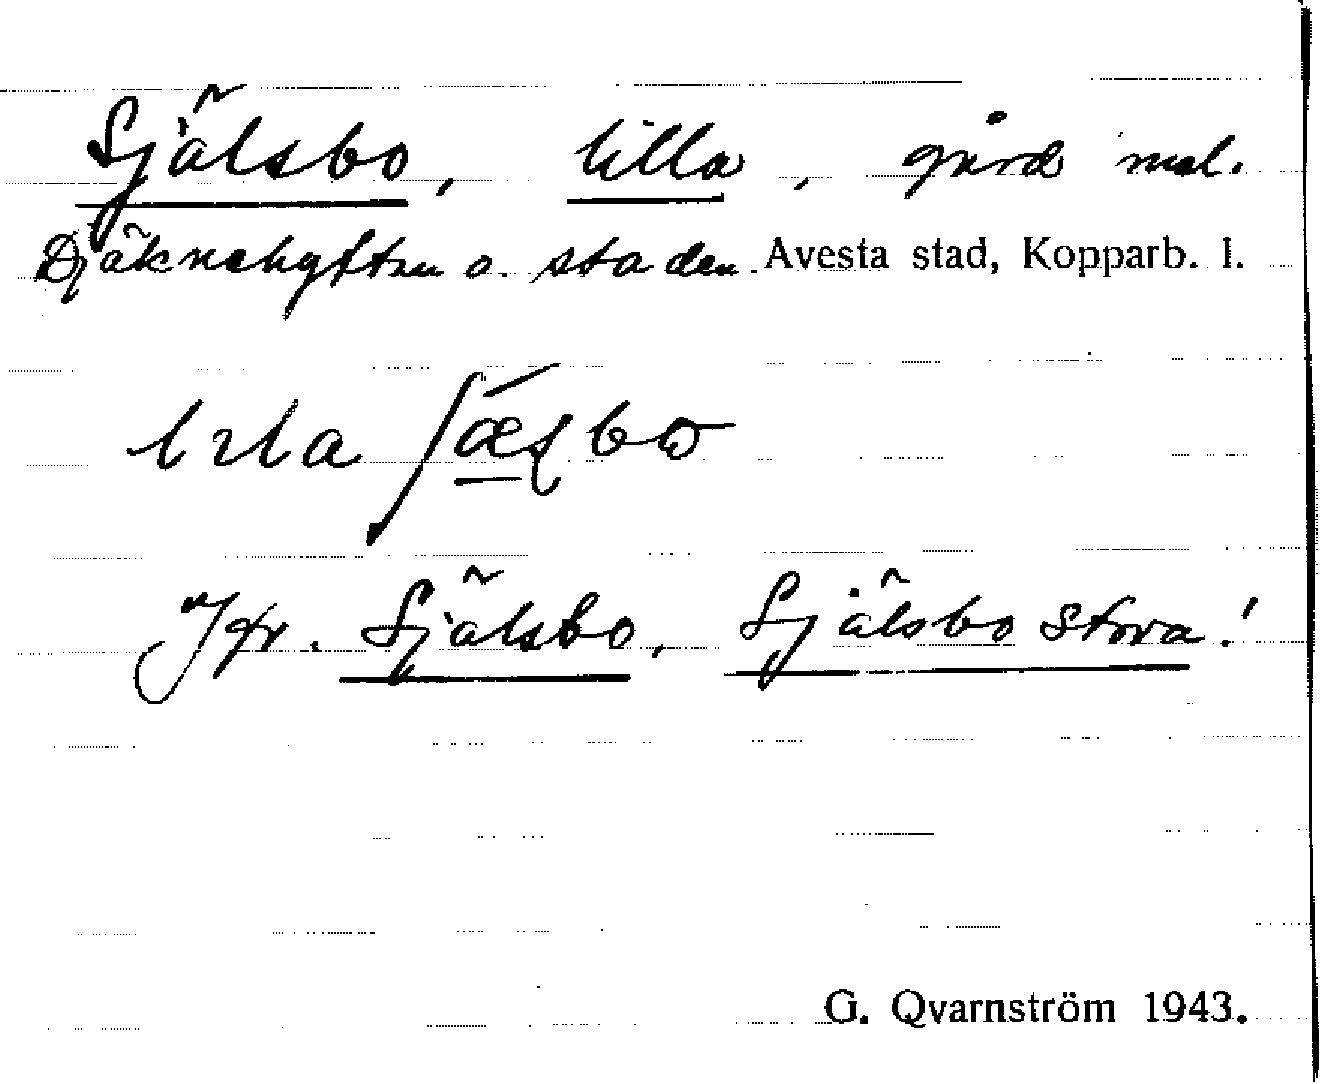 Själsbo, lilla, gård mel.
Djäknehyttan o. staden. Avesta stad, Kopparb. l.
lɪla ʃæ̱ʂbo
Jfr. Själsbo, Själsbo stora!
G. Qvarnström 1943.